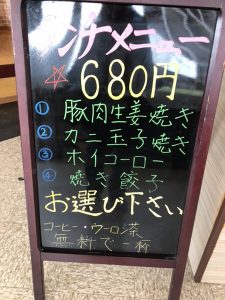 ンチメニュー
☆680円
① 豚肉生姜焼き
② カニ玉子焼き
③ ホイコーロー
④ 焼き餃子
お選び下さい
コーヒー・ウーロン茶
無料で一杯